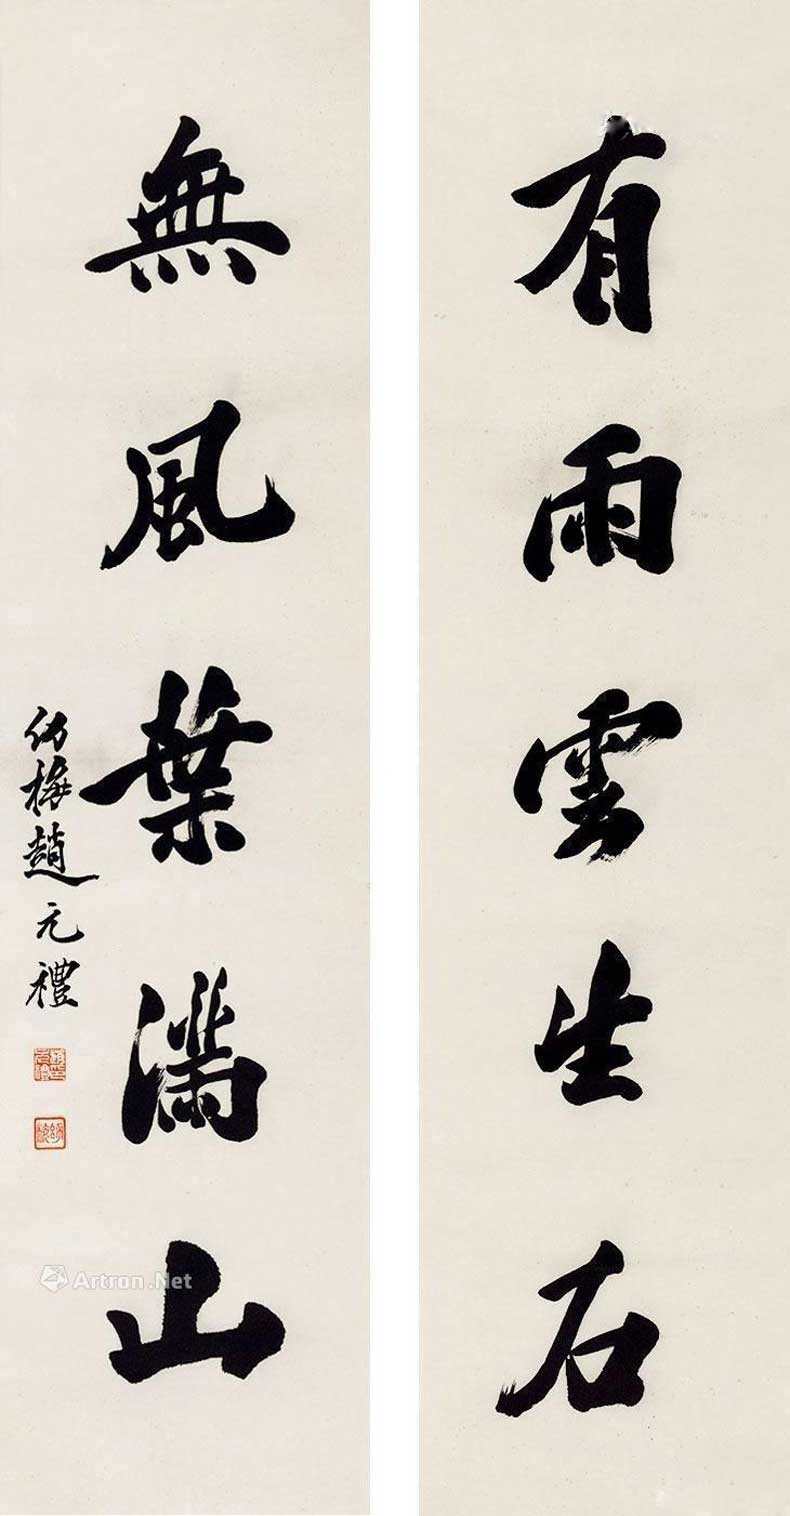 有雨雲生石
無風葉滿山
幼梅趙元禮
Artron.Net